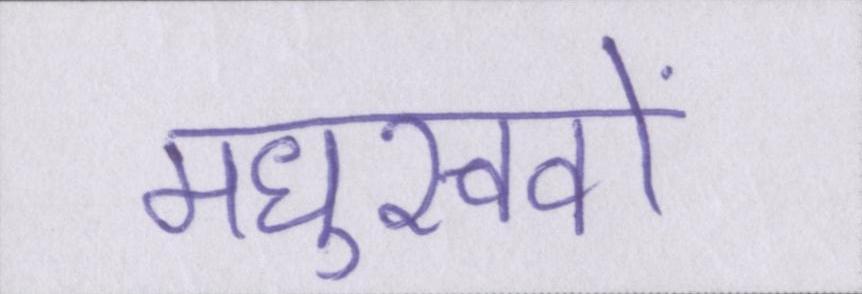 मधुस्ववों